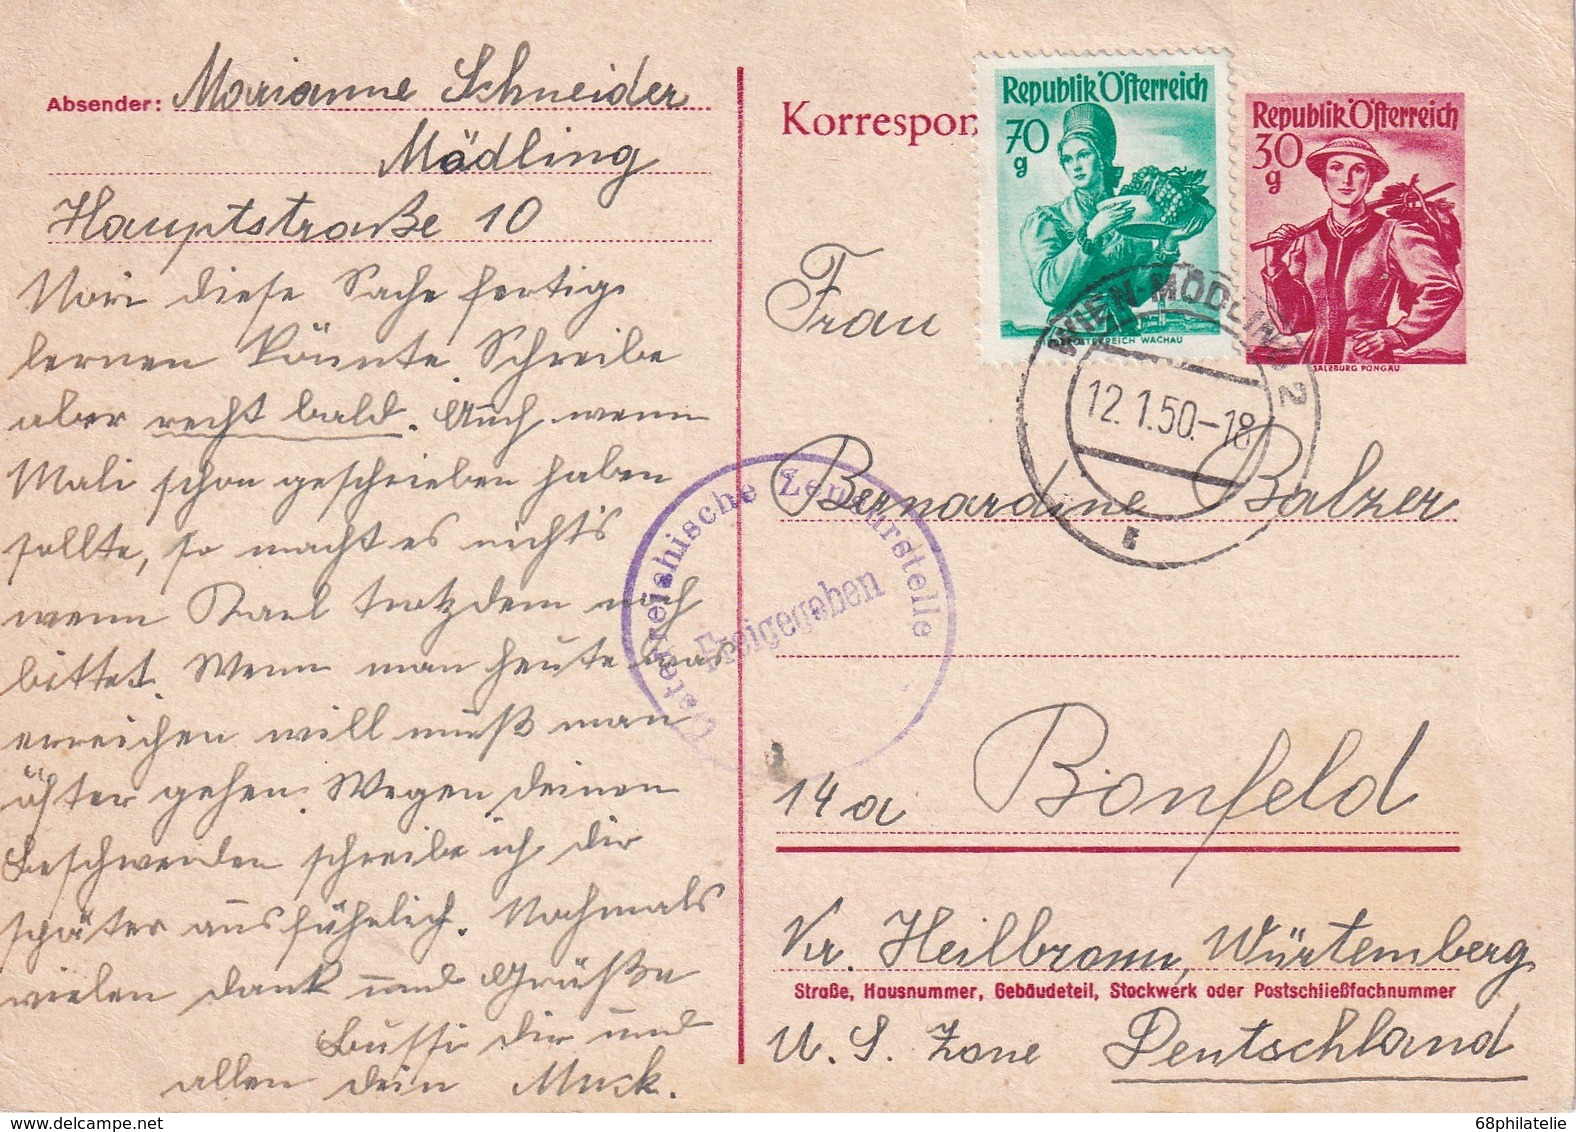 Absender: Marianne Schneider
Mödling
Hauptstraße 10
diese Sache fertig
lernen könnte. Schreibe
aber recht bald. Auch wenn
Mali schon geschrieben haben
sollte, so macht es nichts
wenn Karl trotzdem noch
bittet. Wenn man heute was
erreichen will muß man
öfter gehen. Wegen deinen
Beschwerden schreibe ich dir
später ausführlich. Nochmals
vielen Dank und Grüße
Bussi dir und
allen dein Muck.
Korrespon
Republik Österreich
70
g
NIEDERÖSTERREICH WACHAU
Republik Österreich
30
g
SALZBURG PONGAU
WIEN-MÖDLING 2
12.1.50.-18
Österreichische Zensurstelle
Freigegeben
Frau
Bernardine Balzer
14a Bonfeld
Kr. Heilbronn, Württemberg
Straße, Hausnummer, Gebäudeteil, Stockwerk oder Postschließfachnummer
U. S. Zone Deutschland
68philatelie